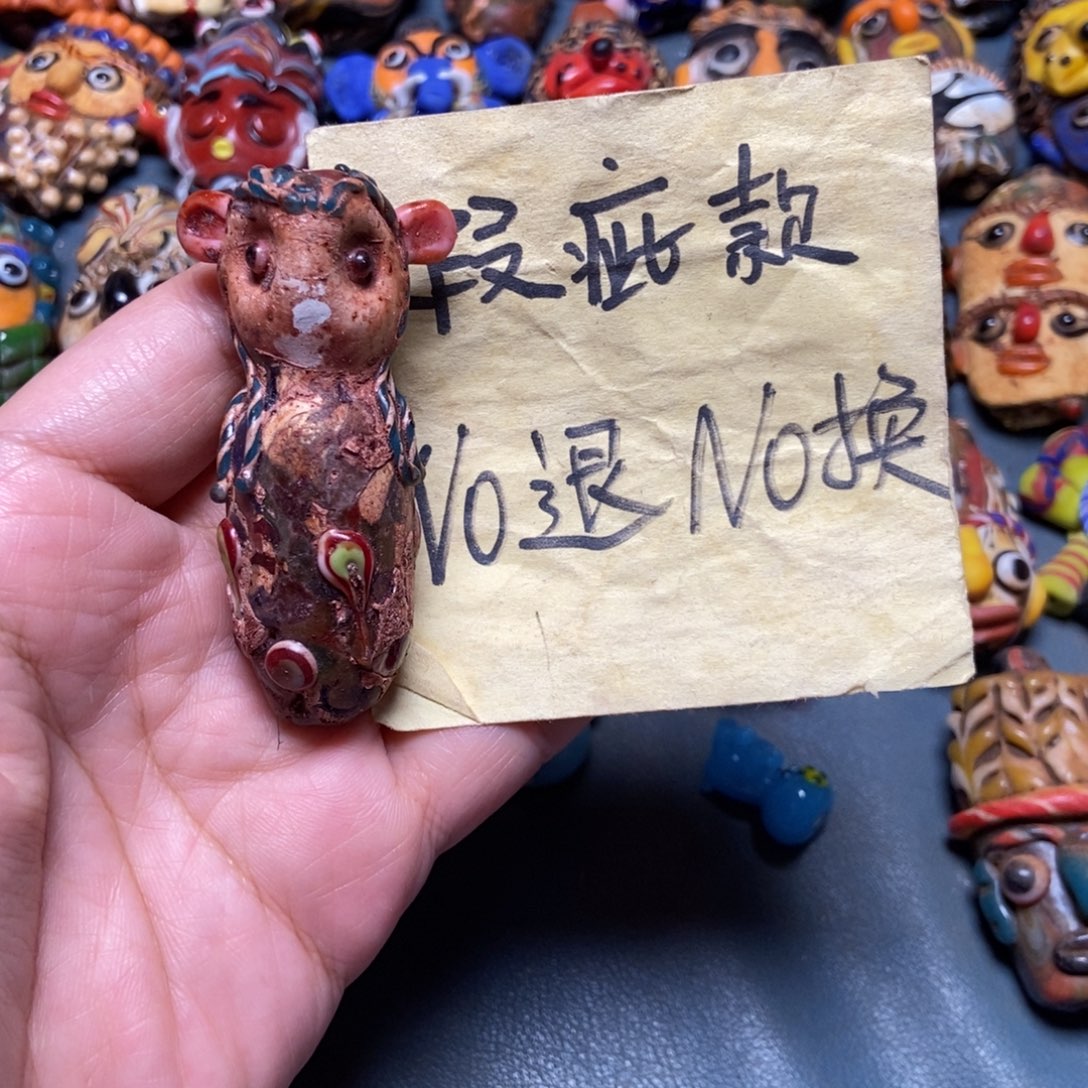 瑕疵款
No退 No换